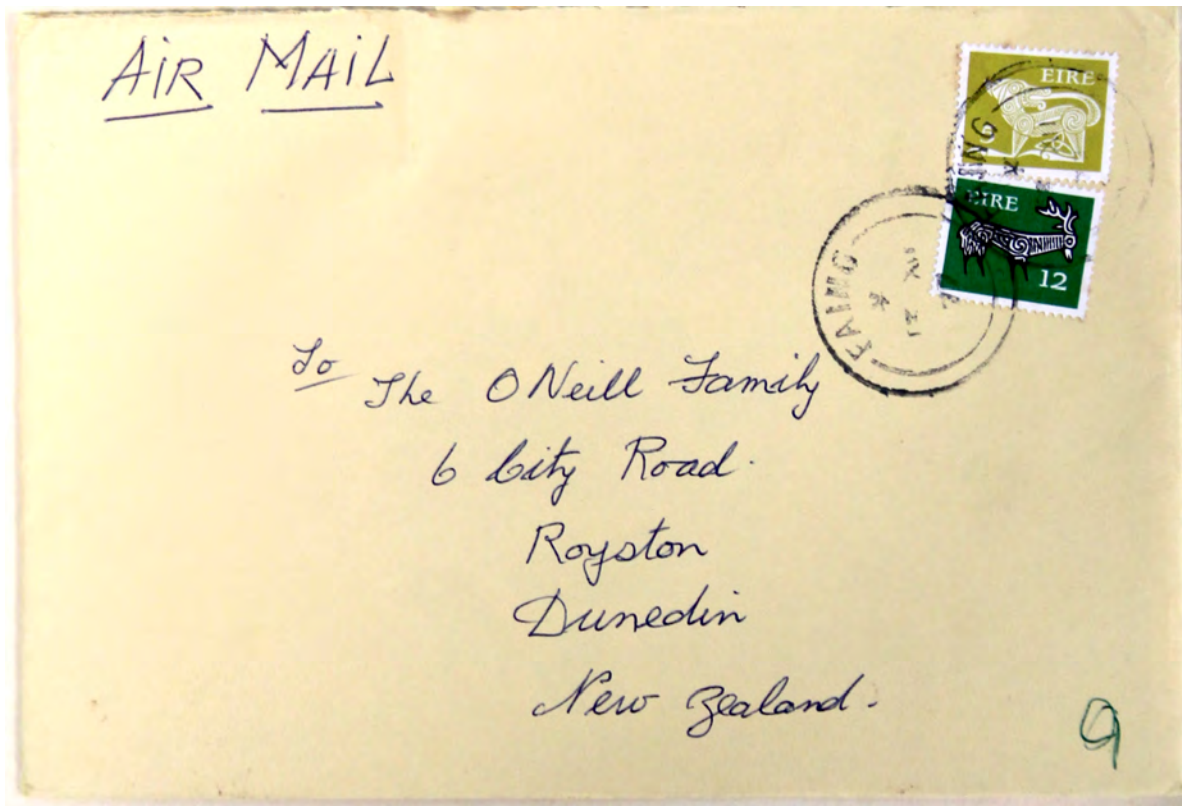 AiR MAiL
EIRE
EIRE
12
FAING
To
The O Neill Family
6 City Road.
Royston
Dunedin
New Zealand.
9